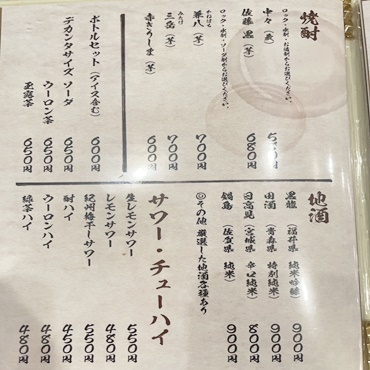 焼酎
ロック・水割・お湯割からお選びください。
中々(麦) 
佐藤 黒(芋) 680円
ロック・水割・ソーダ割からお選びください。
兼八(麦) 700円
三岳(芋) 700円
赤きりしま(芋) 600円
ボトルセット(アイス含む) 650円
デカンタサイズ ソーダ 650円
ウーロン茶 650円
玉露茶 650円
地酒
黒龍(福井県 純米吟醸) 900円
田酒(青森県 特別純米) 900円
日高見(宮城県 辛口純米) 800円
鍋島(佐賀県 純米) 900円
◎その他 厳選した地酒各種あり
サワー・チューハイ
生レモンサワー 550円
レモンサワー 480円
紀州梅干しサワー 550円
酎ハイ 450円
ウーロンハイ 480円
緑茶ハイ 480円